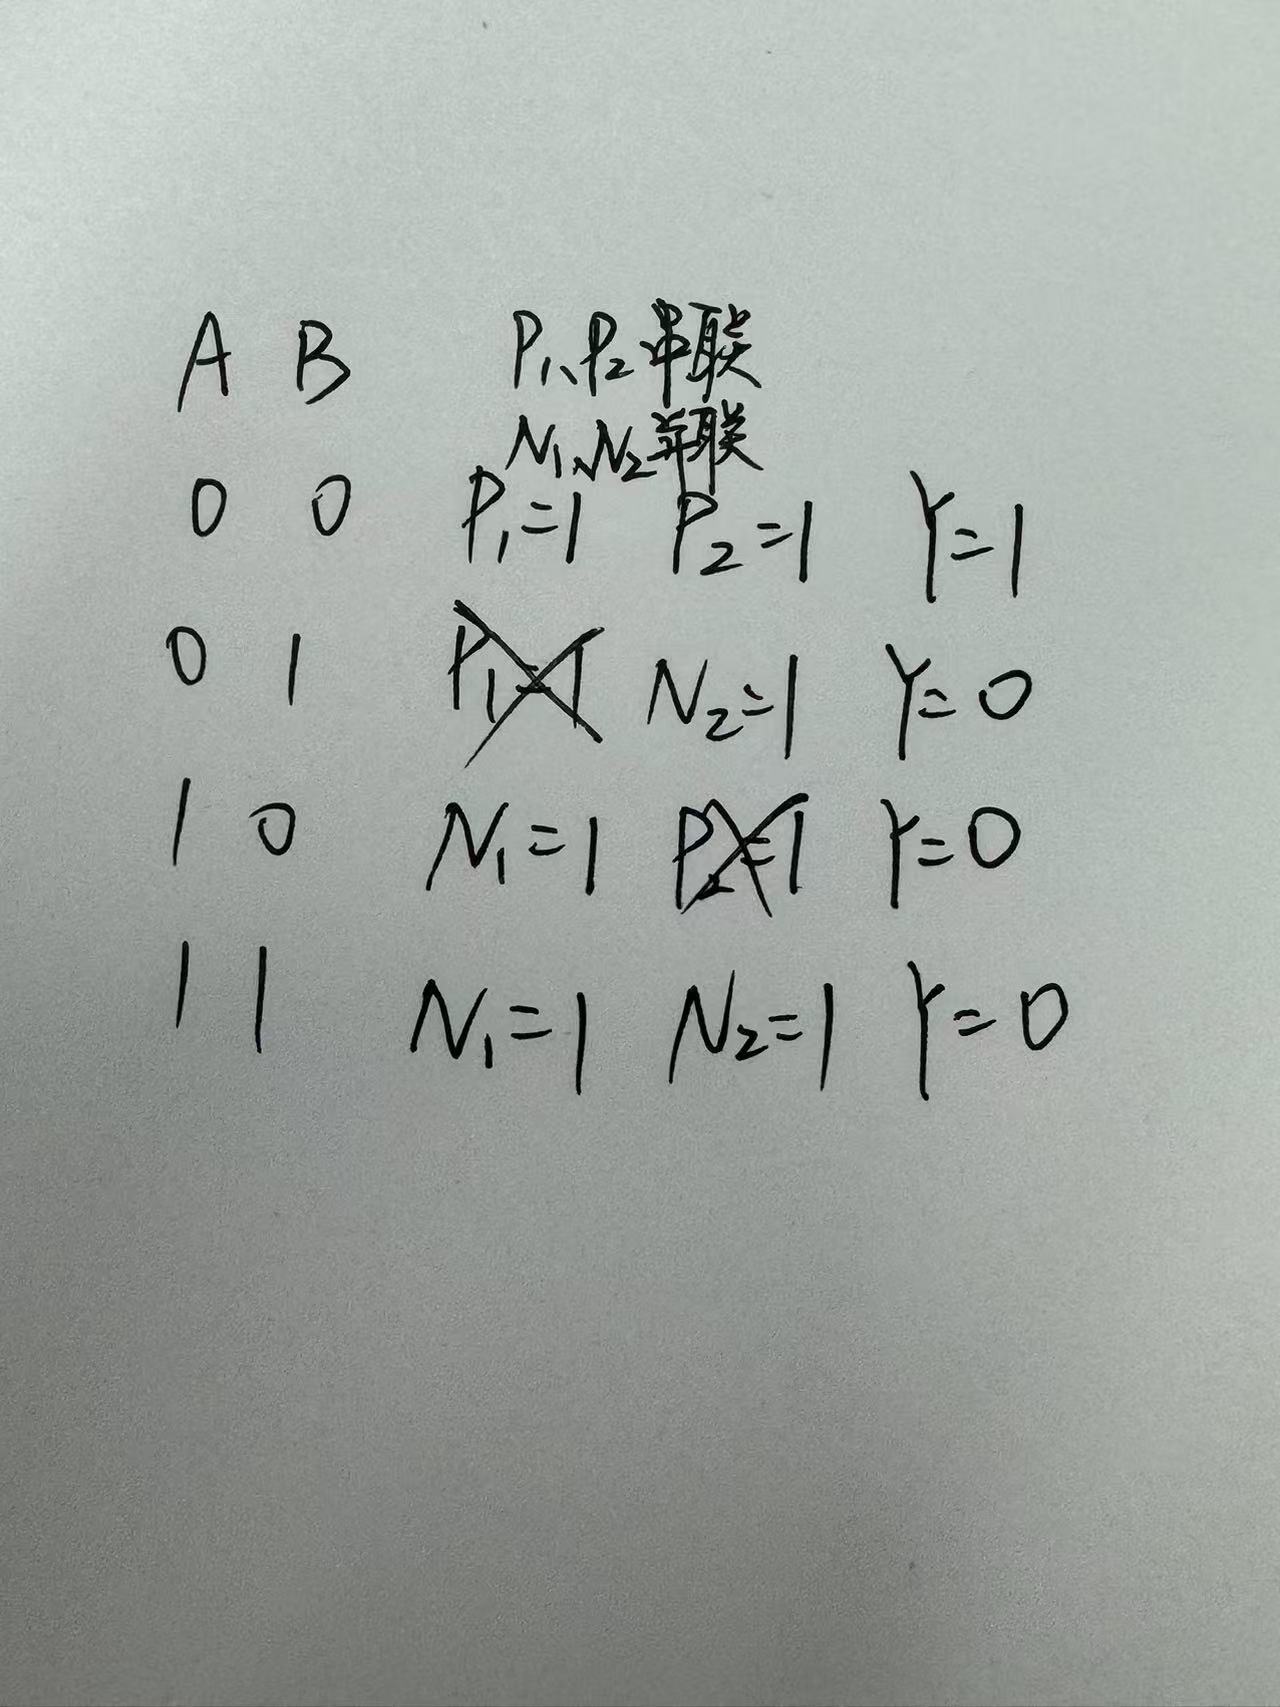 A B P₁、P₂串联
N₁、N₂并联
0 0 P₁=1 P₂=1 Y=1
0 1 P₁=1 N₂=1 Y=0
1 0 N₁=1 P₂=1 Y=0
1 1 N₁=1 N₂=1 Y=0